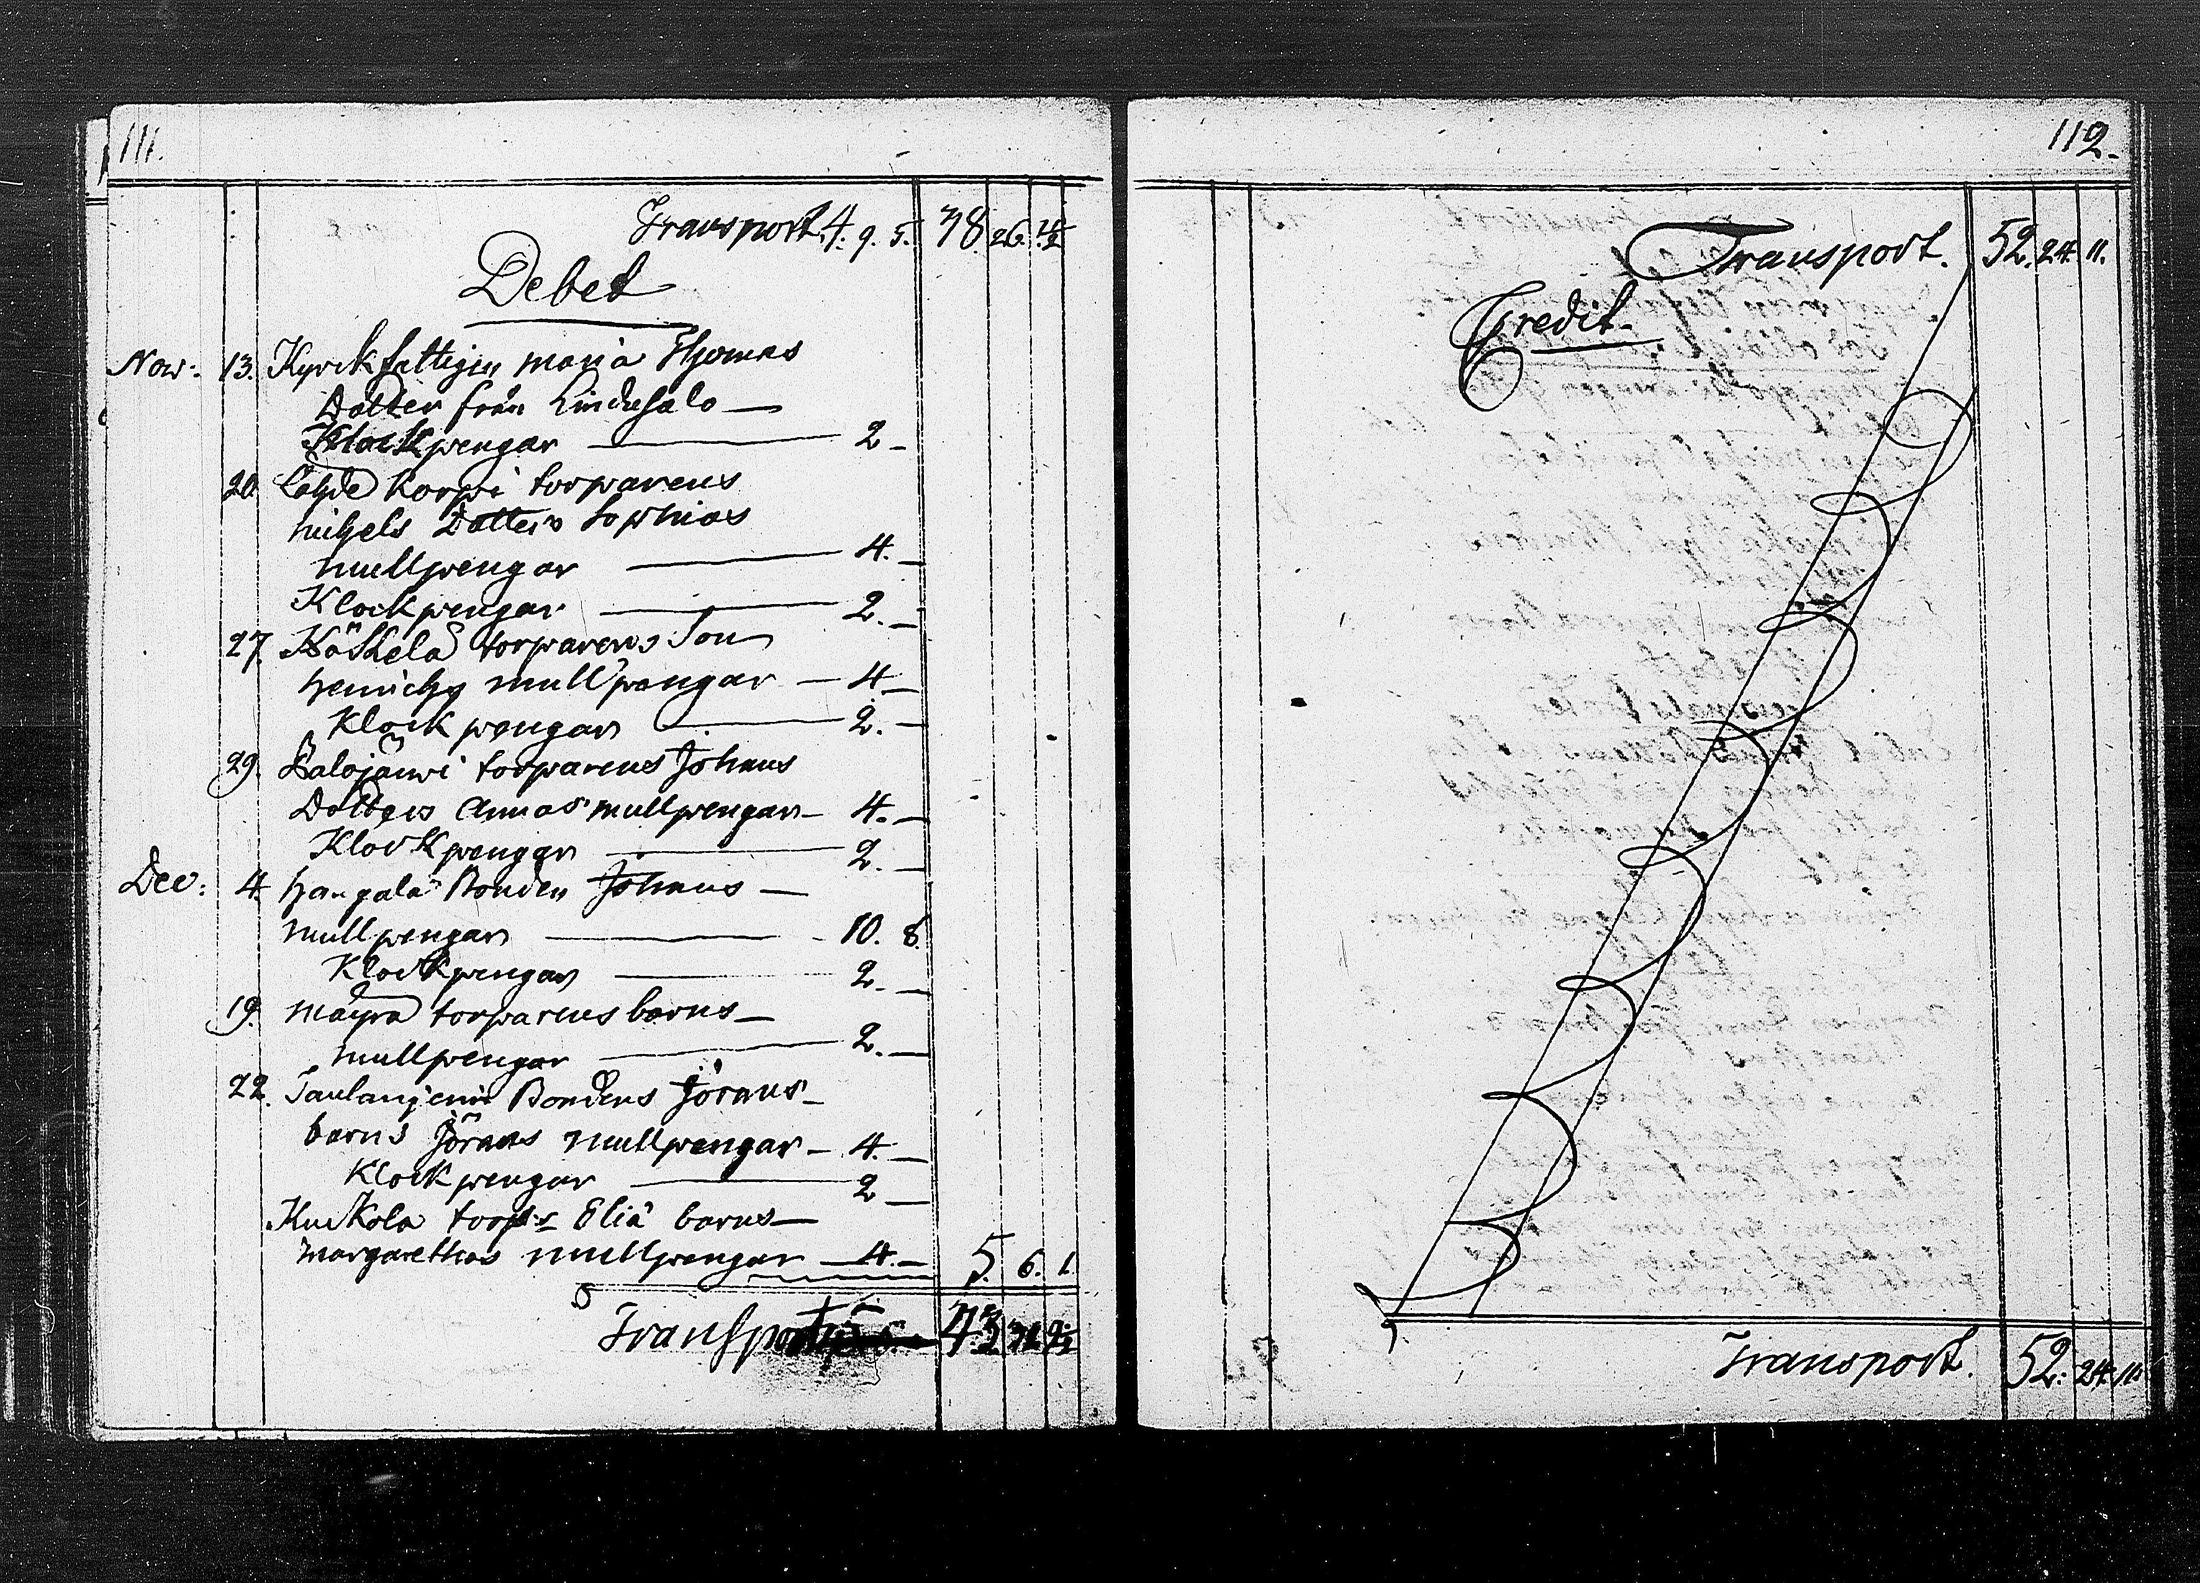 111.
Transport. 4. 9. 5. 38. 26.
Debet
Nov: 13. Kyrckfattigen Maria Thomas
Dotter från Lindusalo —
Klockpengar — 2 –
20. Lahde Korpi torparens
Michels Dotters Sophias
mullpengar — 4. –
Klockpengar — 2. –
27. torparens Son
Henrichs mullpengar — 4 –
Klockpengar — 2. –
29. Salojärwi torparens Johans
Dotters Annas mullpengar – 4. –
Klockpengar — 2. –
Dec: 4. Hangala Bonden Johans —
mullpengar — 10. 8.
Klockpengar — 2. –
19. Mäyrä torparens barns —
mullpengar — 2. –
22. Bondens Jörans –
barns Jörans mullpengar – 4. –
Klockpengar — 2 –
Kuckola torp:s Eliä barns —
Margarethas mullpengar — 4. – 5. 6. 1.
Transport 43
112.
Transport. 52. 24. 11.
Credit.
Transport. 52. 24. 11.